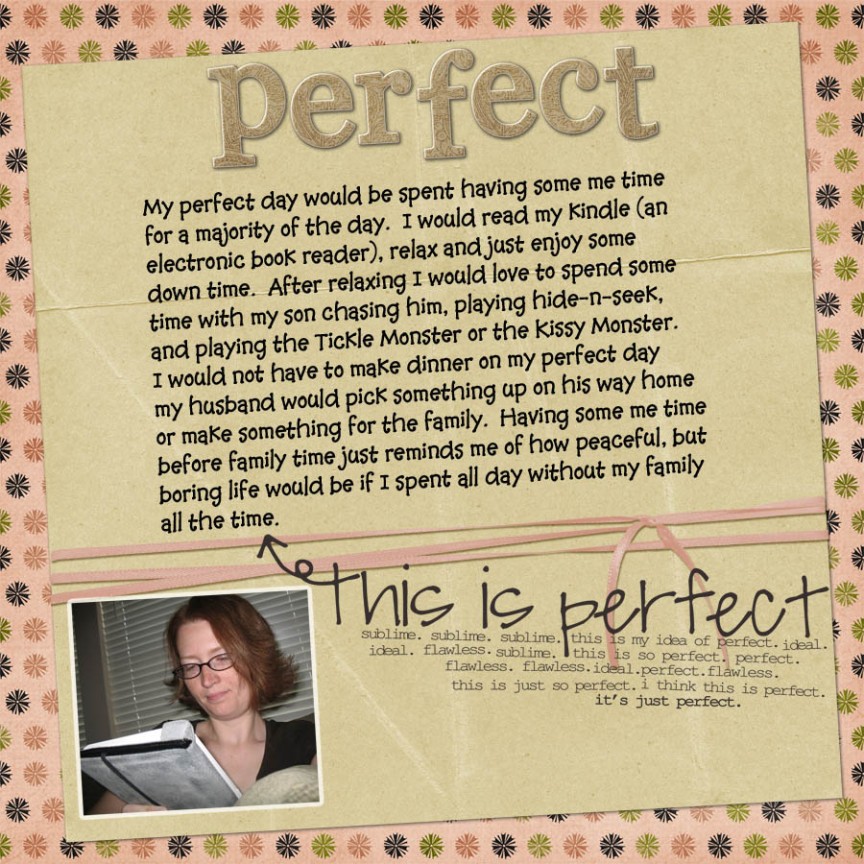 perfect
My perfect day would be spent having some me time
for a majority of the day. I would read my Kindle (an
electronic book reader), relax and just enjoy some
down time. After relaxing I would love to spend some
time with my son chasing him, playing hide-n-seek,
and playing the Tickle Monster or the Kissy Monster.
I would not have to make dinner on my perfect day
my husband would pick something up on his way home
or make something for the family. Having some me time
before family time just reminds me of how peaceful, but
boring life would be if I spent all day without my family
all the time.
this is perfect
sublime. sublime. sublime. this is my idea of perfect. ideal.
ideal. flawless. sublime. this is so perfect. perfect.
flawless. flawless. ideal. perfect. flawless.
this is just so perfect. i think this is perfect.
it's just perfect.